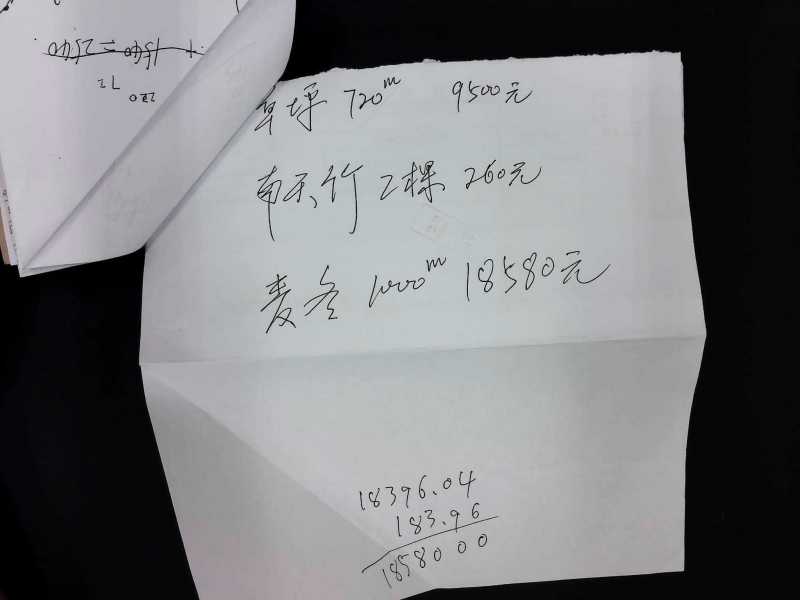 草坪 720m 9500元
南天竹 2棵 260元
麦冬 1000m 18580元
18396.04
183.96
18580 00
220